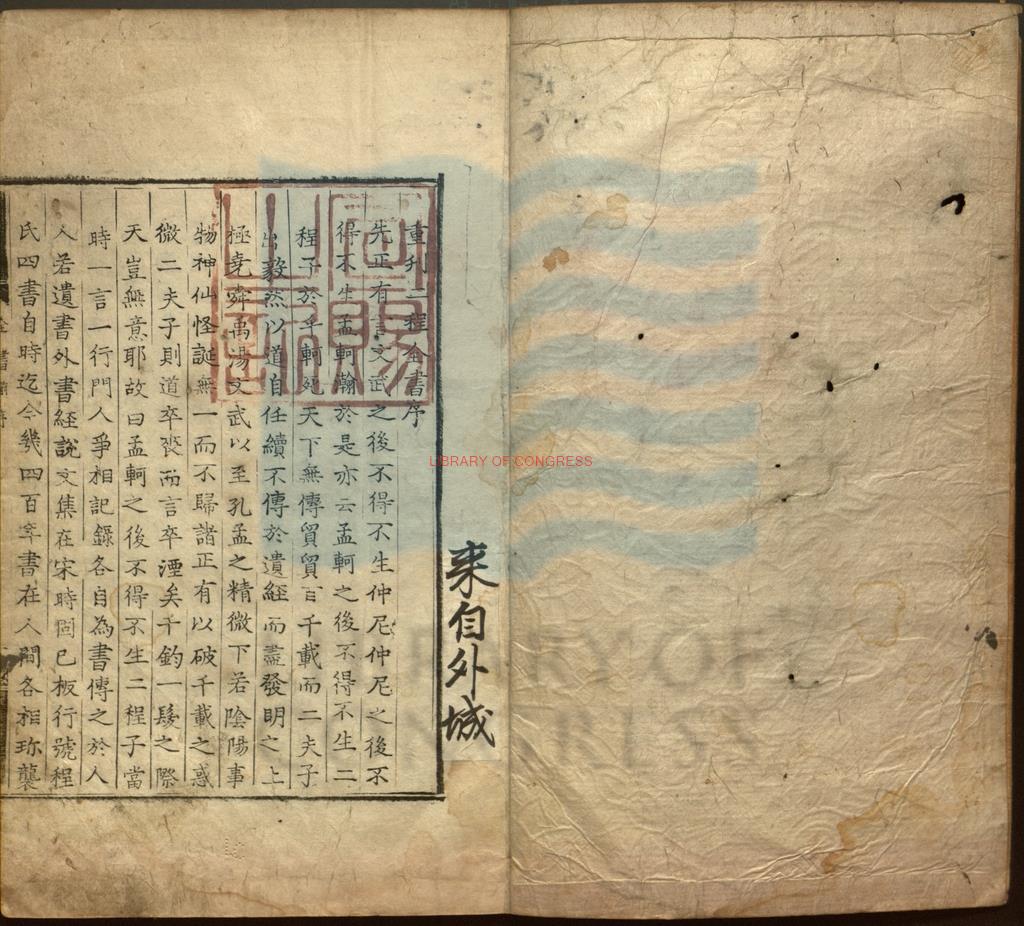 重刋二程全書序
先正有言文武之後不得不生仲尼仲尼之後不
得不生孟軻瀚於是亦云孟軻之後不得不生二
程子於乎軻死天下無傳貿貿百千載而二夫子
出毅然以道自任續不傳於遺經而盡發明之上
極堯舜禹湯文武以至孔孟之精微下若陰陽事
物神仙怪誕無一而不歸諸正有以破千載之惑
微二夫子則道卒喪而言卒湮矣千鈞一髮之際
天豈無意耶故曰孟軻之後不得不生二程子當
時一言一行門人爭相記錄各自為書傳之於人
人若遺書外書經說文集在宋時固已板行號程
氏四書自時迄今幾四百年書在人間各相珎襲
来自外城
LIBRARY OF CONGRESS